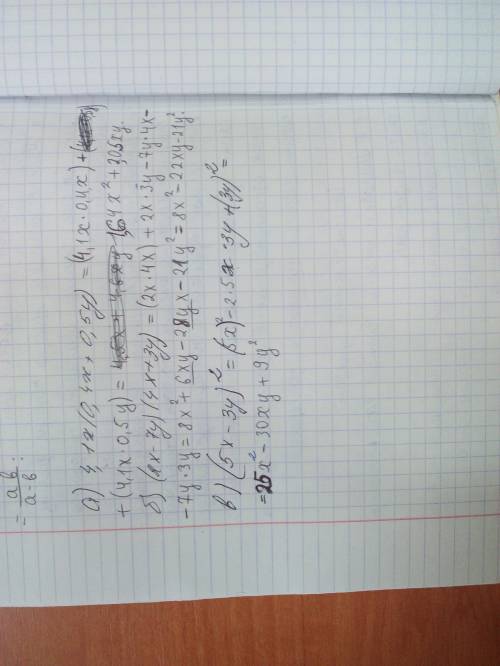 = ab/a-b :
а) 4,1x(0,4x + 0,5y) = (4,1x · 0,4x) +
+ (4,1x · 0,5y) = 1,64x² + 2,05xy.
б) (2x-7y)(4x+3y) = (2x·4x) + 2x·3y - 7y·4x -
- 7y·3y = 8x² + 6xy - 28yx - 21y² = 8x² - 22xy - 21y².
в) (5x - 3y)² = (5x)² - 2·5x·3y + (3y)² =
= 25x² - 30xy + 9y²